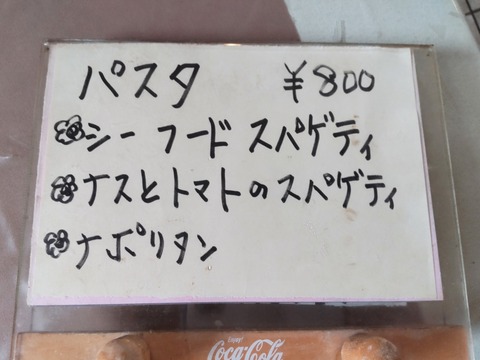 パスタ ¥800
シーフードスパゲティ
ナスとトマトのスパゲティ
ナポリタン
Enjoy
Coca-Cola